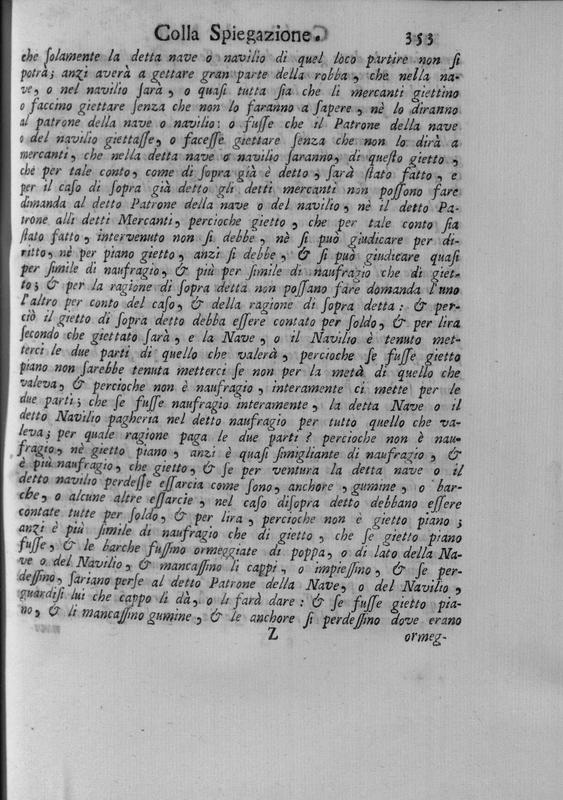 Colla Spiegazione. 353
che ſolamente la detta nave o navilio di quel loco partire non ſi
potrà; anzi averà a gettare gran parte della robba, che nella na-
ve, o nel navilio ſarà, o quaſi tutta ſia che li mercanti giettino
o faccino giettare ſenza che non lo faranno a ſapere, nè lo diranno
al patrone della nave o navilio: o fuſſe che il Patrone della nave
o del navilio giettaſſe, o faceſſe giettare ſenza che non lo dirà a
mercanti, che nella detta nave o navilio ſaranno, di queſto gietto,
che per tale conto, come di ſopra già è detto, ſarà ſtato fatto, e
per il caſo di ſopra già detto gli detti mercanti non poſſono fare
dimanda al detto Patrone della nave o del navilio, nè il detto Pa-
trone alli detti Mercanti, percioche gietto, che per tale conto ſia
ſtato fatto, intervenuto non ſi debbe, nè ſi può giudicare per di-
ritto, nè per piano gietto, anzi ſi debbe, & ſi può giudicare quaſi
per ſimile di naufragio, & più per ſimile di naufragio che di giet-
to; & per la ragione di ſopra detta non poſſano fare domanda l'uno
l'altro per conto del caſo, & della ragione di ſopra detta: & per-
ciò il gietto di ſopra detto debba eſſere contato per ſoldo, & per lira
ſecondo che giettato ſarà, e la Nave, o il Navilio è tenuto met-
terci le due parti di quello che valerà, percioche ſe fuſſe gietto
piano non ſarebbe tenuta metterci ſe non per la metà di quello che
valeva, & percioche non è naufragio, interamente ci mette per le
due parti; che ſe fuſſe naufragio interamente, la detta Nave o il
detto Navilio pagheria nel detto naufragio per tutto quello che va-
leva; per quale ragione paga le due parti? percioche non è nau-
fragio, nè gietto piano, anzi è quaſi ſimigliante di naufragio, &
è più naufragio, che gietto, & ſe per ventura la detta nave o il
detto navilio perdeſſe eſſarcia come ſono, anchore, gumine, o bar-
che, o alcune altre eſſarcie, nel caſo diſopra detto debbano eſſere
contate tutte per ſoldo, & per lira, percioche non è gietto piano;
anzi è più ſimile di naufragio che di gietto, che ſe gietto piano
fuſſe, & le barche fuſſino ormeggiate di poppa, o di lato della Na-
ve o del Navilio, & mancaſſino li cappi, o impieſſino, & ſe per-
deſſino, ſariano perſe al detto Patrone della Nave, o del Navilio,
guardiſi lui che cappo li dà, o li farà dare: & ſe fuſſe gietto pia-
no, & li mancaſſino gumine, & le anchore ſi perdeſſino dove erano
Z ormeg-